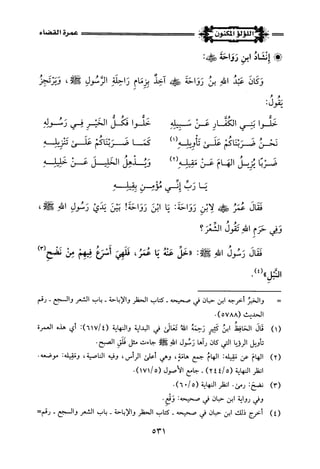 اللؤلؤ المكنون
عمرة القضاء
إِنْشَادُ ابنِ رَوَاحَةَ ﷺ:
وَكَانَ عَبْدُ اللهِ بنُ رَوَاحَةَ آخِذٌ بِزِمَامِ رَاحِلَةِ الرَّسُولِ ﷺ، وَيَرْتَجِزُ
يَقُولُ:
خَلُّوا بَنِي الكُفَّارِ عَنْ سَبِيلِهِ خَلُّوا فَكُلُّ الخَيْرِ فِي رَسُولِهِ
نَحْنُ ضَرَبْنَاكُمْ عَلَى تَأْوِيلِهِ(١) كَمَا ضَرَبْنَاكُمْ عَلَى تَنْزِيلِهِ
ضَرْبًا يُزِيلُ الهَامَ عَنْ مَقِيلِهِ(٢) وَيُذْهِلُ الخَلِيلَ عَنْ خَلِيلِهِ
يَا رَبِّ إِنِّي مُؤْمِنٌ بِقِيلِهِ
فَقَالَ عُمَرُ لِابْنِ رَوَاحَةَ: يَا ابْنَ رَوَاحَةَ! بَيْنَ يَدَيْ رَسُولِ اللهِ ﷺ،
وَفِي حَرَمِ اللهِ تَقُولُ الشِّعْرَ؟
فَقَالَ رَسُولُ اللهِ ﷺ: «خَلِّ عَنْهُ يَا عُمَرُ، فَلَهِيَ أَسْرَعُ فِيهِمْ مِنْ نَضْحِ(٣)
النَّبْلِ»(٤).
= والخبرُ أخرجه ابن حبان في صحيحه ـ كتاب الحظر والإباحة ـ باب الشعر والسجع ـ رقم
الحديث (٥٧٨٨).
(١) قَالَ الحَافِظُ ابنُ كَثِيرٍ رَحِمَهُ اللهُ تَعَالَى في البداية والنهاية (٦١٧/٤): أي هذه العمرة
تأويل الرؤيا التي كان رآها رَسُول اللهِ ﷺ جاءت مثل فَلَقِ الصبح.
(٢) الهامَ عن مَقِيلِه: الهامُ جمع هامَةٍ، وهي أعلىٰ الرأس، وفيه الناصية، ومَقِيلِه: موضعه.
انظر النهاية (٢٤٤/٥) ـ جامع الأصول (١٧١/٥).
(٣) نضحَ: رمىٰ. انظر النهاية (٦٠/٥).
وفي رواية ابن حبان في صحيحه: وَقْعِ.
(٤) أخرج ذلك ابن حبان في صحيحه ـ كتاب الحظر والإباحة ـ باب الشعر والسجع ـ رقم=
٥٣١